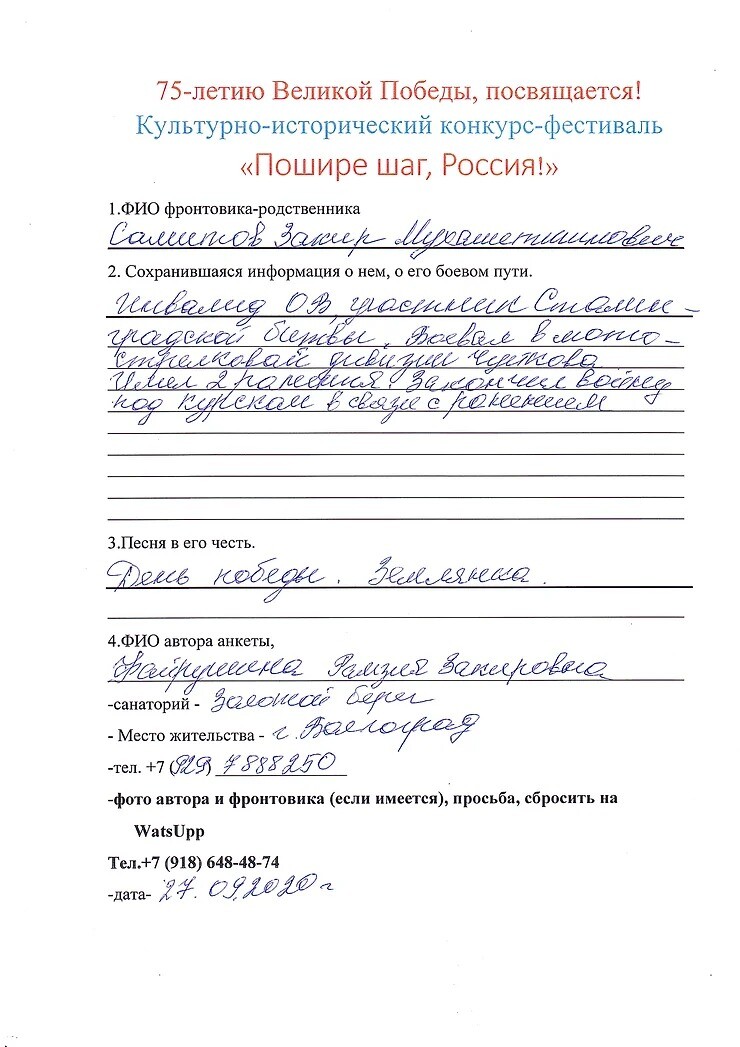 75-летию Великой Победы, посвящается!
Культурно-исторический конкурс-фестиваль
«Пошире шаг, Россия!»
1.ФИО фронтовика-родственника
Самитов Закир
2. Сохранившаяся информация о нем, о его боевом пути.
Инвалид ОВ, участник Сталин-
градской битвы. Воевал в мото-
стрелковой дивизии Чуйкова
Имел 2 ранения. Закончил войну
под Курском в связи с ранением
3.Песня в его честь.
День победы. Землянка.
4.ФИО автора анкеты,
Файрушина Рамзия Закировна
-санаторий - Золотой берег
- Место жительства - г. Волгоград
-тел. +7 (929) 7888250
-фото автора и фронтовика (если имеется), просьба, сбросить на
WatsUpp
Тел.+7 (918) 648-48-74
-дата- 27.09.2020 г